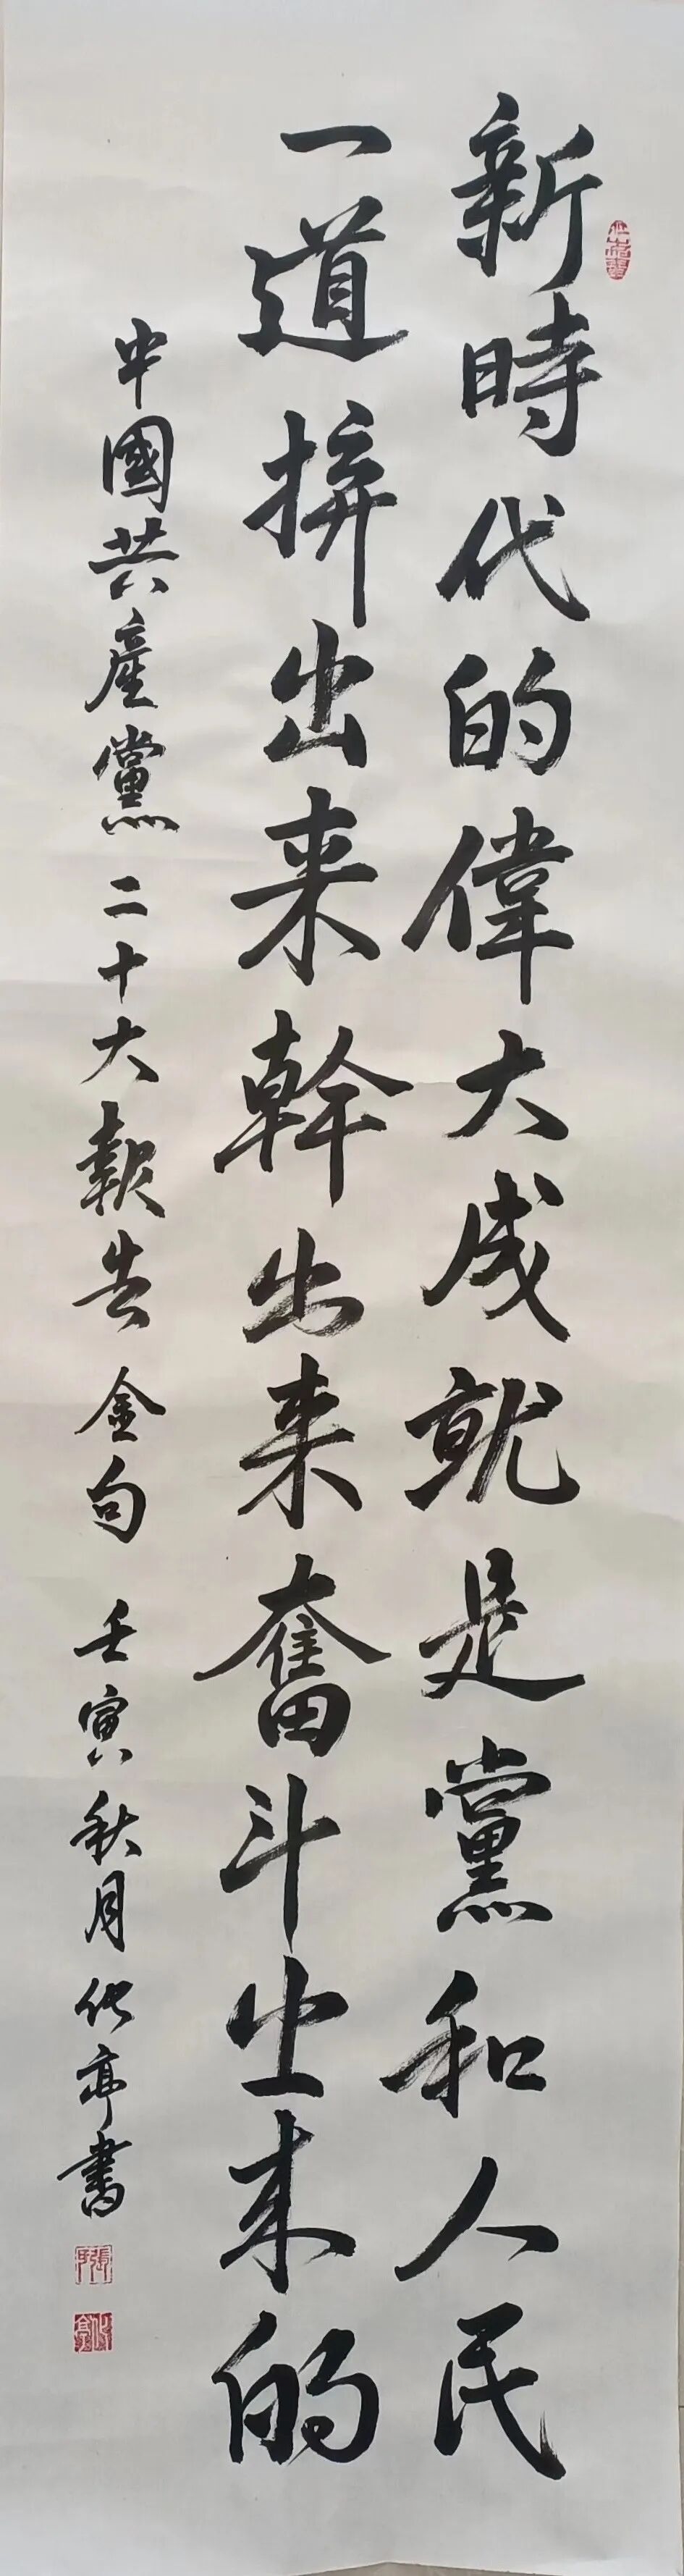 新時代的偉大成就是黨和人民
一道拚出来幹出来奮斗出来的
中國共產黨二十大報告金句 壬寅秋月代亭書